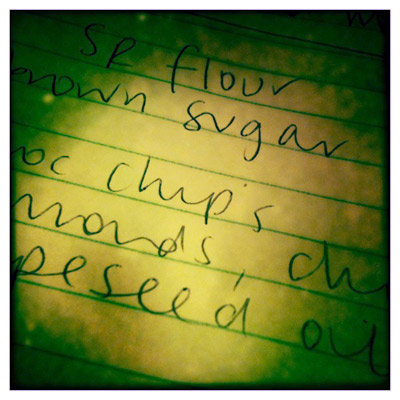 SR flour
rown sugar
oc chips
monds, ch
peseed oil